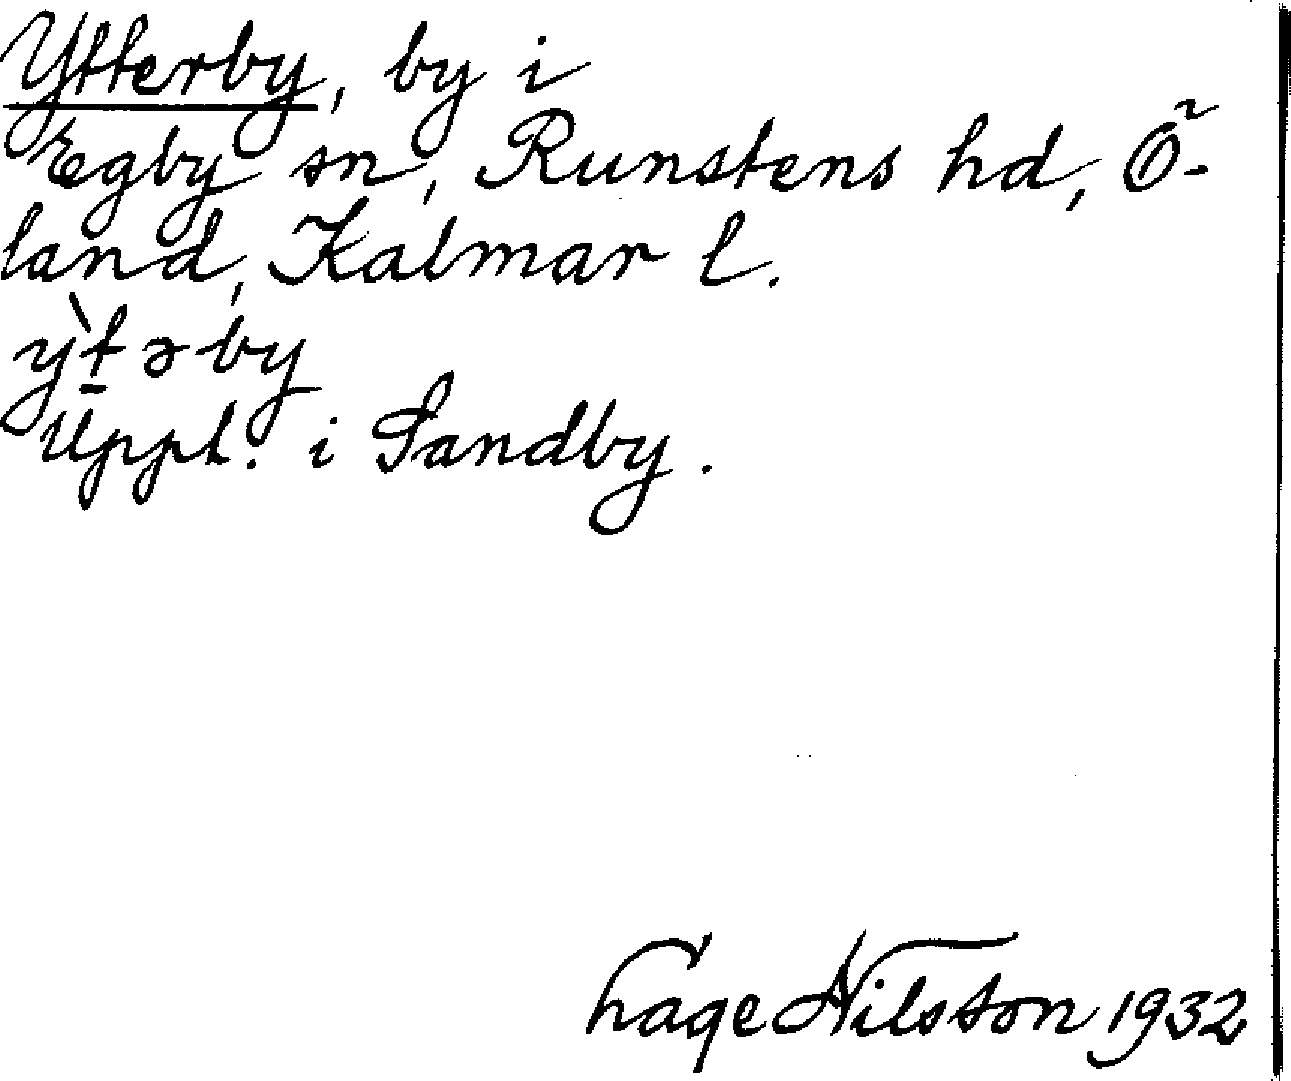 Ytterby, by i
Egby sn, Runstens hd, Ö-
land, Kalmar l.
ỳ̖t̠əby
Uppt. i Sandby.
Hage Nilsson 1932